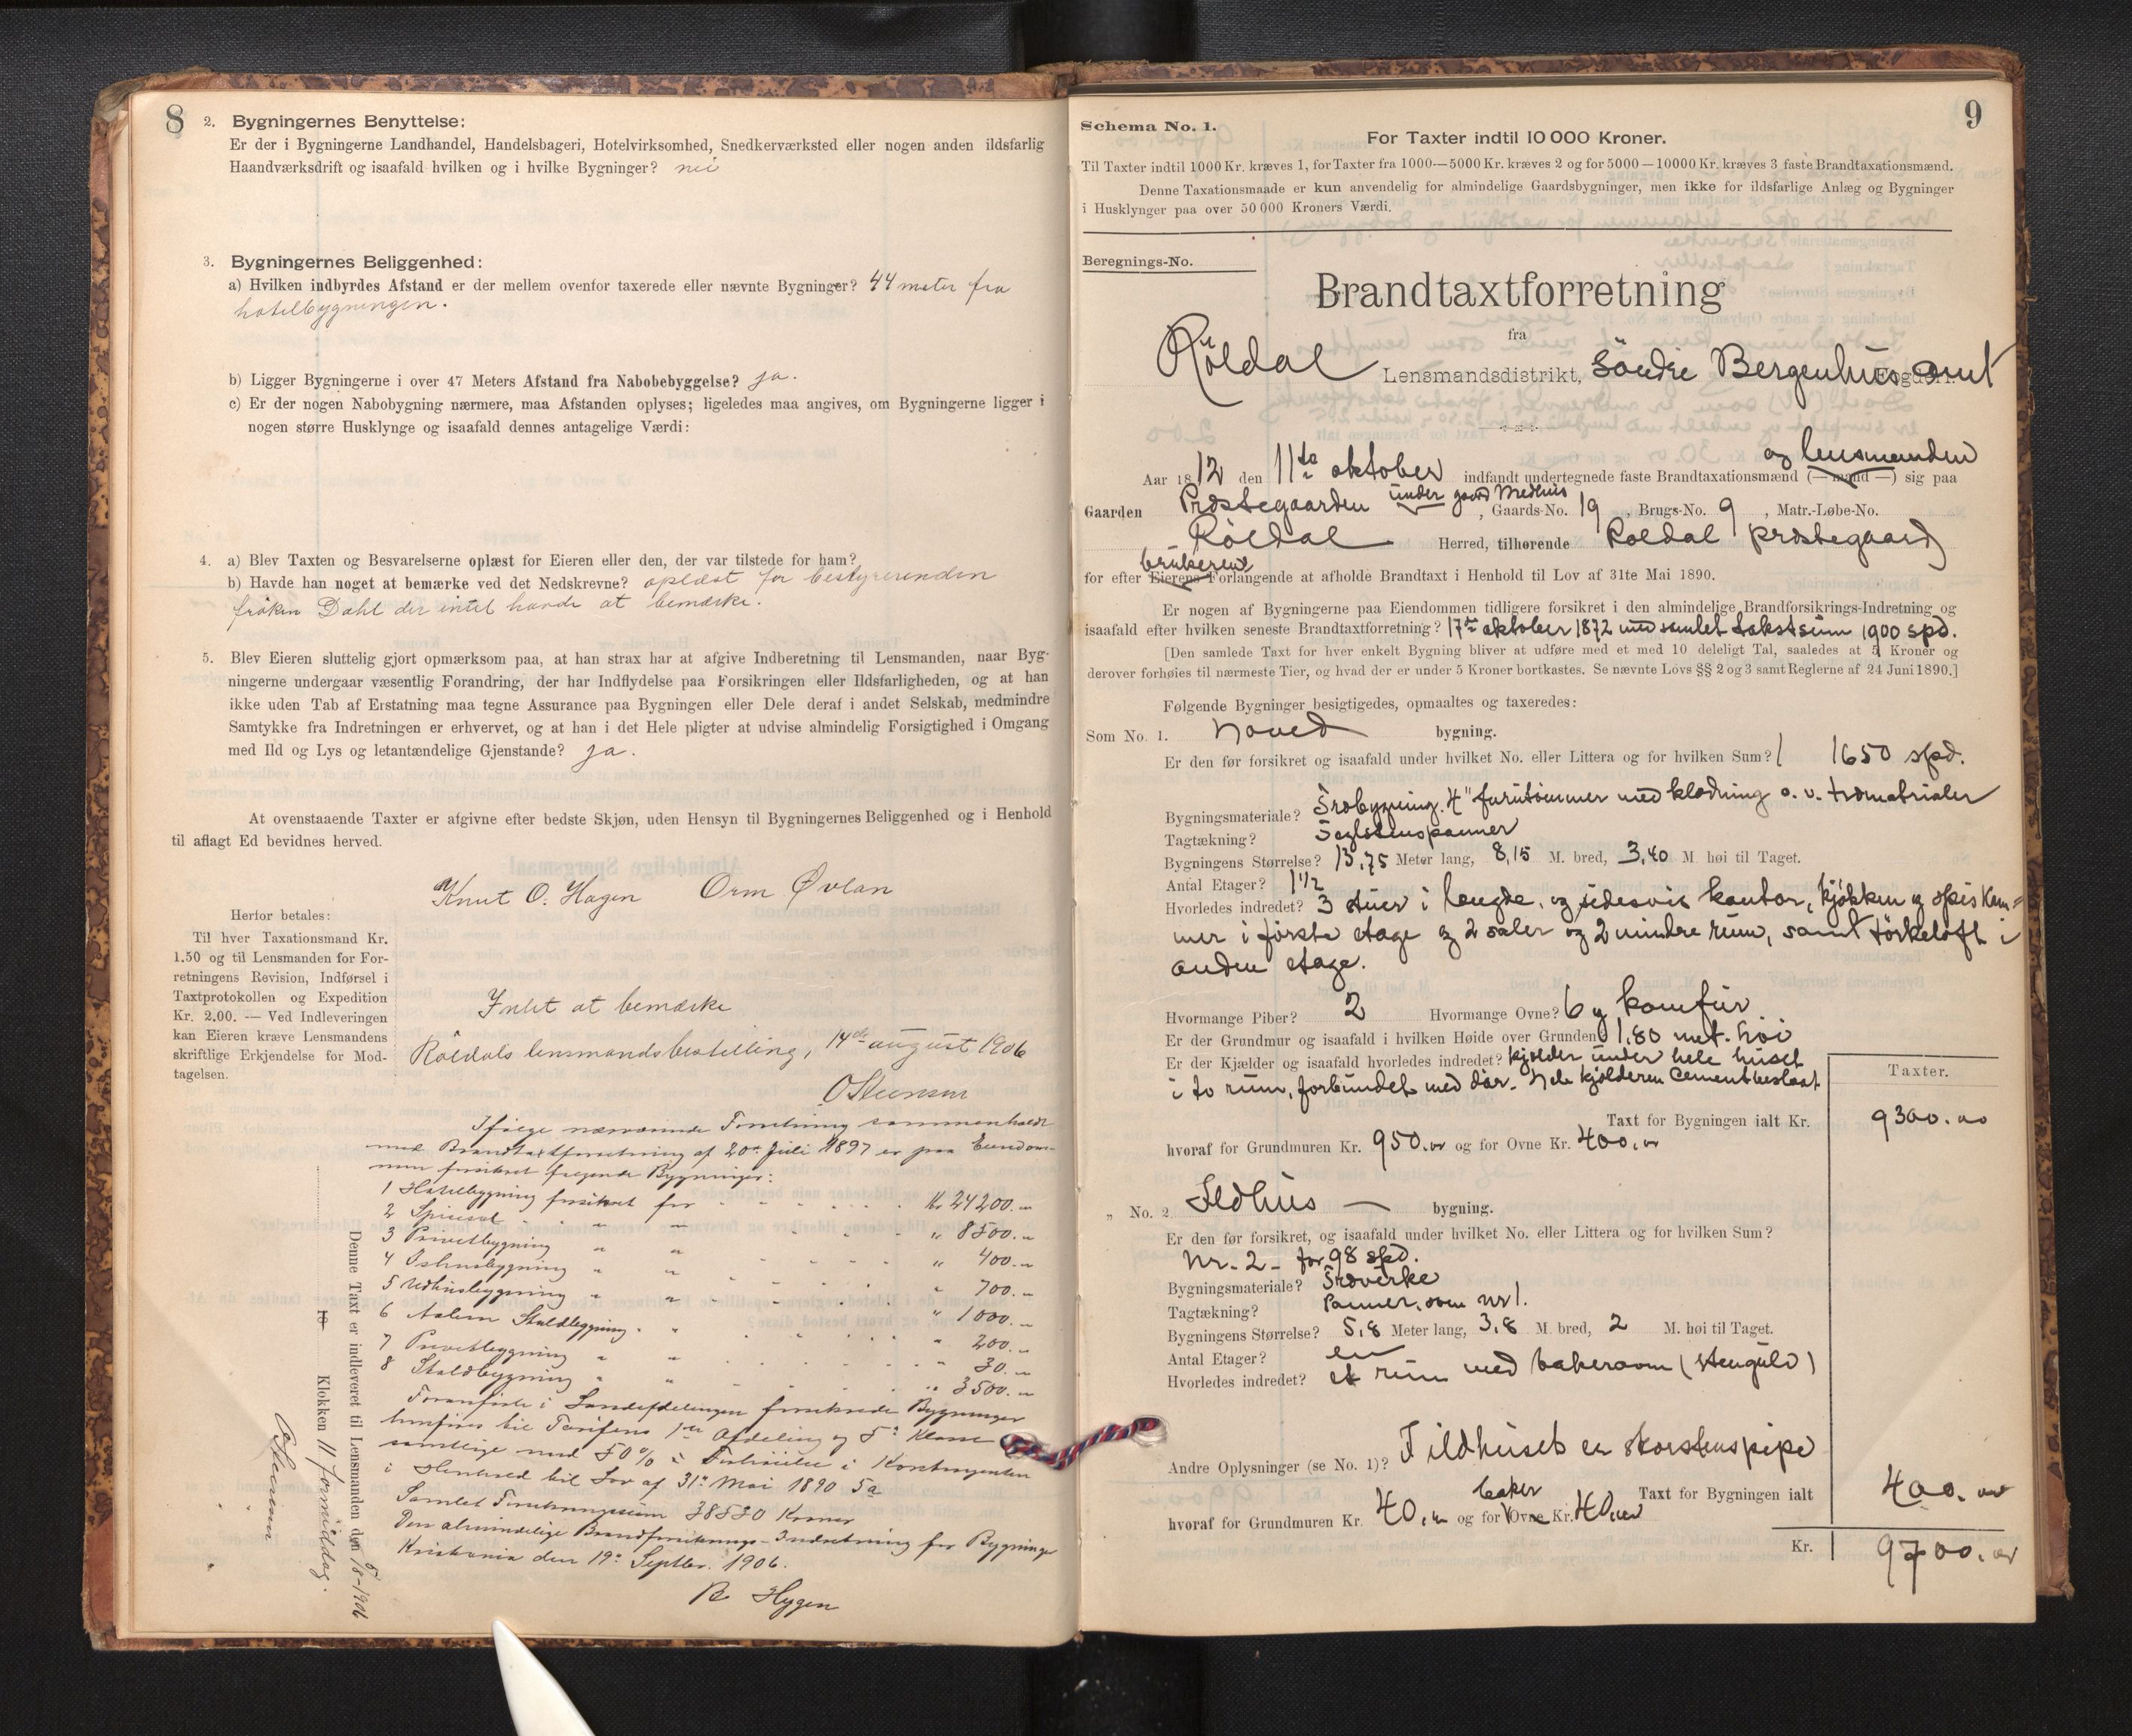 8
2. Bygningernes Benyttelse:
Er der i Bygningerne Landhandel, Handelsbageri, Hotelvirksomhed, Snedkerværksted eller nogen anden ildsfarlig
Haandværksdrift og isaafald hvilken og i hvilke Bygninger? nei
3. Bygningernes Beliggenhed:
a) Hvilken indbyrdes Afstand er der mellem ovenfor taxerede eller nævnte Bygninger? 44 meter fra
hotelbygningen.
b) Ligger Bygningerne i over 47 Meters Afstand fra Nabobebyggelse? ja.
c) Er der nogen Nabobygning nærmere, maa Afstanden oplyses; ligeledes maa angives, om Bygningerne ligger i
nogen større Husklynge og isaafald dennes antagelige Værdi:
4. a) Blev Taxten og Besvarelserne oplæst for Eieren eller den, der var tilstede for ham?
b) Havde han noget at bemærke ved det Nedskrevne? oplæst for bestyrerinden
frøken Dahl der intet havde at bemærke.
5. Blev Eieren sluttelig gjort opmærksom paa, at han strax har at afgive Indberetning til Lensmanden, naar Byg-
ningerne undergaar væsentlig Forandring, der har Indflydelse paa Forsikringen eller Ildsfarligheden, og at han
ikke uden Tab af Erstatning maa tegne Assurance paa Bygningen eller Dele deraf i andet Selskab, medmindre
Samtykke fra Indretningen er erhvervet, og at han i det Hele pligter at udvise almindelig Forsigtighed i Omgang
med Ild og Lys og letantændelige Gjenstande? ja.
At ovenstaaende Taxter er afgivne efter bedste Skjøn, uden Hensyn til Bygningernes Beliggenhed og i Henhold
til aflagt Ed bevidnes herved.
Knut O. Hagen Orm Øvlan
Herfor betales:
Til hver Taxationsmand Kr.
1.50 og til Lensmanden for For-
retningens Revision, Indførsel i
Taxtprotokollen og Expedition
Kr. 2.00. — Ved Indleveringen
kan Eieren kræve Lensmandens
skriftlige Erkjendelse for Mod-
tagelsen.
Intet at bemærke
Röldals lensmandsbestilling, 14de august 1906
OSteensen
Ifølge nærværende Forretning sammenholdt
med Brandtaxtforretning af 20de Juli 1897 er paa Eiendom-
men forsikret følgende Bygninger:
1 Hotelbygning forsikret for Kr 24200.-
2 Spisesal " " 8500.-
3 Privetbygning " " 400.-
4 Ishusbygning " " 700.-
5 Udhusbygning " " 1000.-
6 Aaben Skuldbygning " " 200.-
7 Privetbygning " " 30.-
8 Staldbygning " " 3500.-
Foranførte i Landafdelingen forsikrede Bygninger
henføres til Tarifens 1ste Afdeling og 5te Klasse
samtlige med 50% Forhøielse i Kontingenten
i Henhold til Lov af 31te Mai 1890 § 5a
Samlet Forsikringssum 38530 Kroner
Den almindelige Brandforsikrings-Indretning for Bygninger
Kristiania den 19de Septbr. 1906.
R Hygen
Denne Taxt er indleveret til Lensmanden den 7/8-1906
18 Klokken 11 formiddag.
OSteensen
9
Schema No. 1.
For Taxter indtil 10 000 Kroner.
Til Taxter indtil 1000 Kr. kræves 1, for Taxter fra 1000—5000 Kr. kræves 2 og for 5000—10000 Kr. kræves 3 faste Brandtaxationsmænd.
Denne Taxationsmaade er kun anvendelig for almindelige Gaardsbygninger, men ikke for ildsfarlige Anlæg og Bygninger
i Husklynger paa over 50 000 Kroners Værdi.
Beregnings-No.
Brandtaxtforretning
fra
Röldal Lensmandsdistrikt, Söndre Bergenhus amt Fogderi.
og lensmanden
Aar 1812 den 11te oktober indfandt undertegnede faste Brandtaxationsmænd (— mand —) sig paa
Gaarden Præstegaarden under gaard Medhus, Gaards-No. 19, Brugs-No. 9, Matr.-Løbe-No.
Röldal Herred, tilhørende Roldal præstegaard
brukeren
for efter Eierens Forlangende at afholde Brandtaxt i Henhold til Lov af 31te Mai 1890.
Er nogen af Bygningerne paa Eiendommen tidligere forsikret i den almindelige Brandforsikrings-Indretning og
isaafald efter hvilken seneste Brandtaxtforretning? 17de oktober 1872 med samlet takstsum 1900 spd.
[Den samlede Taxt for hver enkelt Bygning bliver at udføre med et med 10 deleligt Tal, saaledes at 5 Kroner og
derover forhøies til nærmeste Tier, og hvad der er under 5 Kroner bortkastes. Se nævnte Lovs §§ 2 og 3 samt Reglerne af 24 Juni 1890.]
Følgende Bygninger besigtigedes, opmaaltes og taxeredes:
Som No. 1. Hoved bygning.
Er den før forsikret og isaafald under hvilket No. eller Littera og for hvilken Sum? 1 1650 spd.
Bygningsmateriale? Træbygning. 4" furutömmer med klædning o. v. træmaterialer
Tagtækning? Teglstenspanner
Bygningens Størrelse? 13,75 Meter lang, 8,15 M. bred, 3,40 M. høi til Taget.
Antal Etager? 1 1/2
Hvorledes indredet? 3 stuer i længde, og sidesvis kontor, kjökken og spiskam-
mer i förste etage og 2 saler og 2 mindre rum, samt törkeloft i
anden etage.
Hvormange Piber? 2 Hvormange Ovne? 6 og komfur
Er der Grundmur og isaafald i hvilken Høide over Grunden? 1,80 met. høi
Er der Kjælder og isaafald hvorledes indredet? kjelder under hele huset
i to rum, forbundet med dør. Hele kjelderen Cementbeslaat
Taxter.
Taxt for Bygningen ialt Kr. 9300.00
hvoraf for Grundmuren Kr. 950.00 og for Ovne Kr. 400.00
„ No. 2. Ildhus — bygning.
Er den før forsikret, og isaafald under hvilket No. eller Littera og for hvilken Sum?
Nr. 2 - for 98 spd.
Bygningsmateriale? Træverke
Tagtækning? Panner, som nr 1.
Bygningens Størrelse? 5,8 Meter lang, 3,8 M. bred, 2 M. høi til Taget.
Antal Etager? en
Hvorledes indredet? et rum med bakerovn (stengulv)
Andre Oplysninger (se No. 1)? I ildhuset er skorstenspipe
Taxt for Bygningen ialt 400.00
baker
hvoraf for Grundmuren Kr. 40.00 og for Ovne Kr. 40.00
Kr. 9700.00